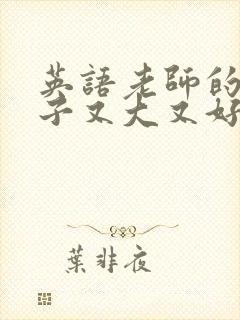 英語老師的
子又大又好
葉非夜